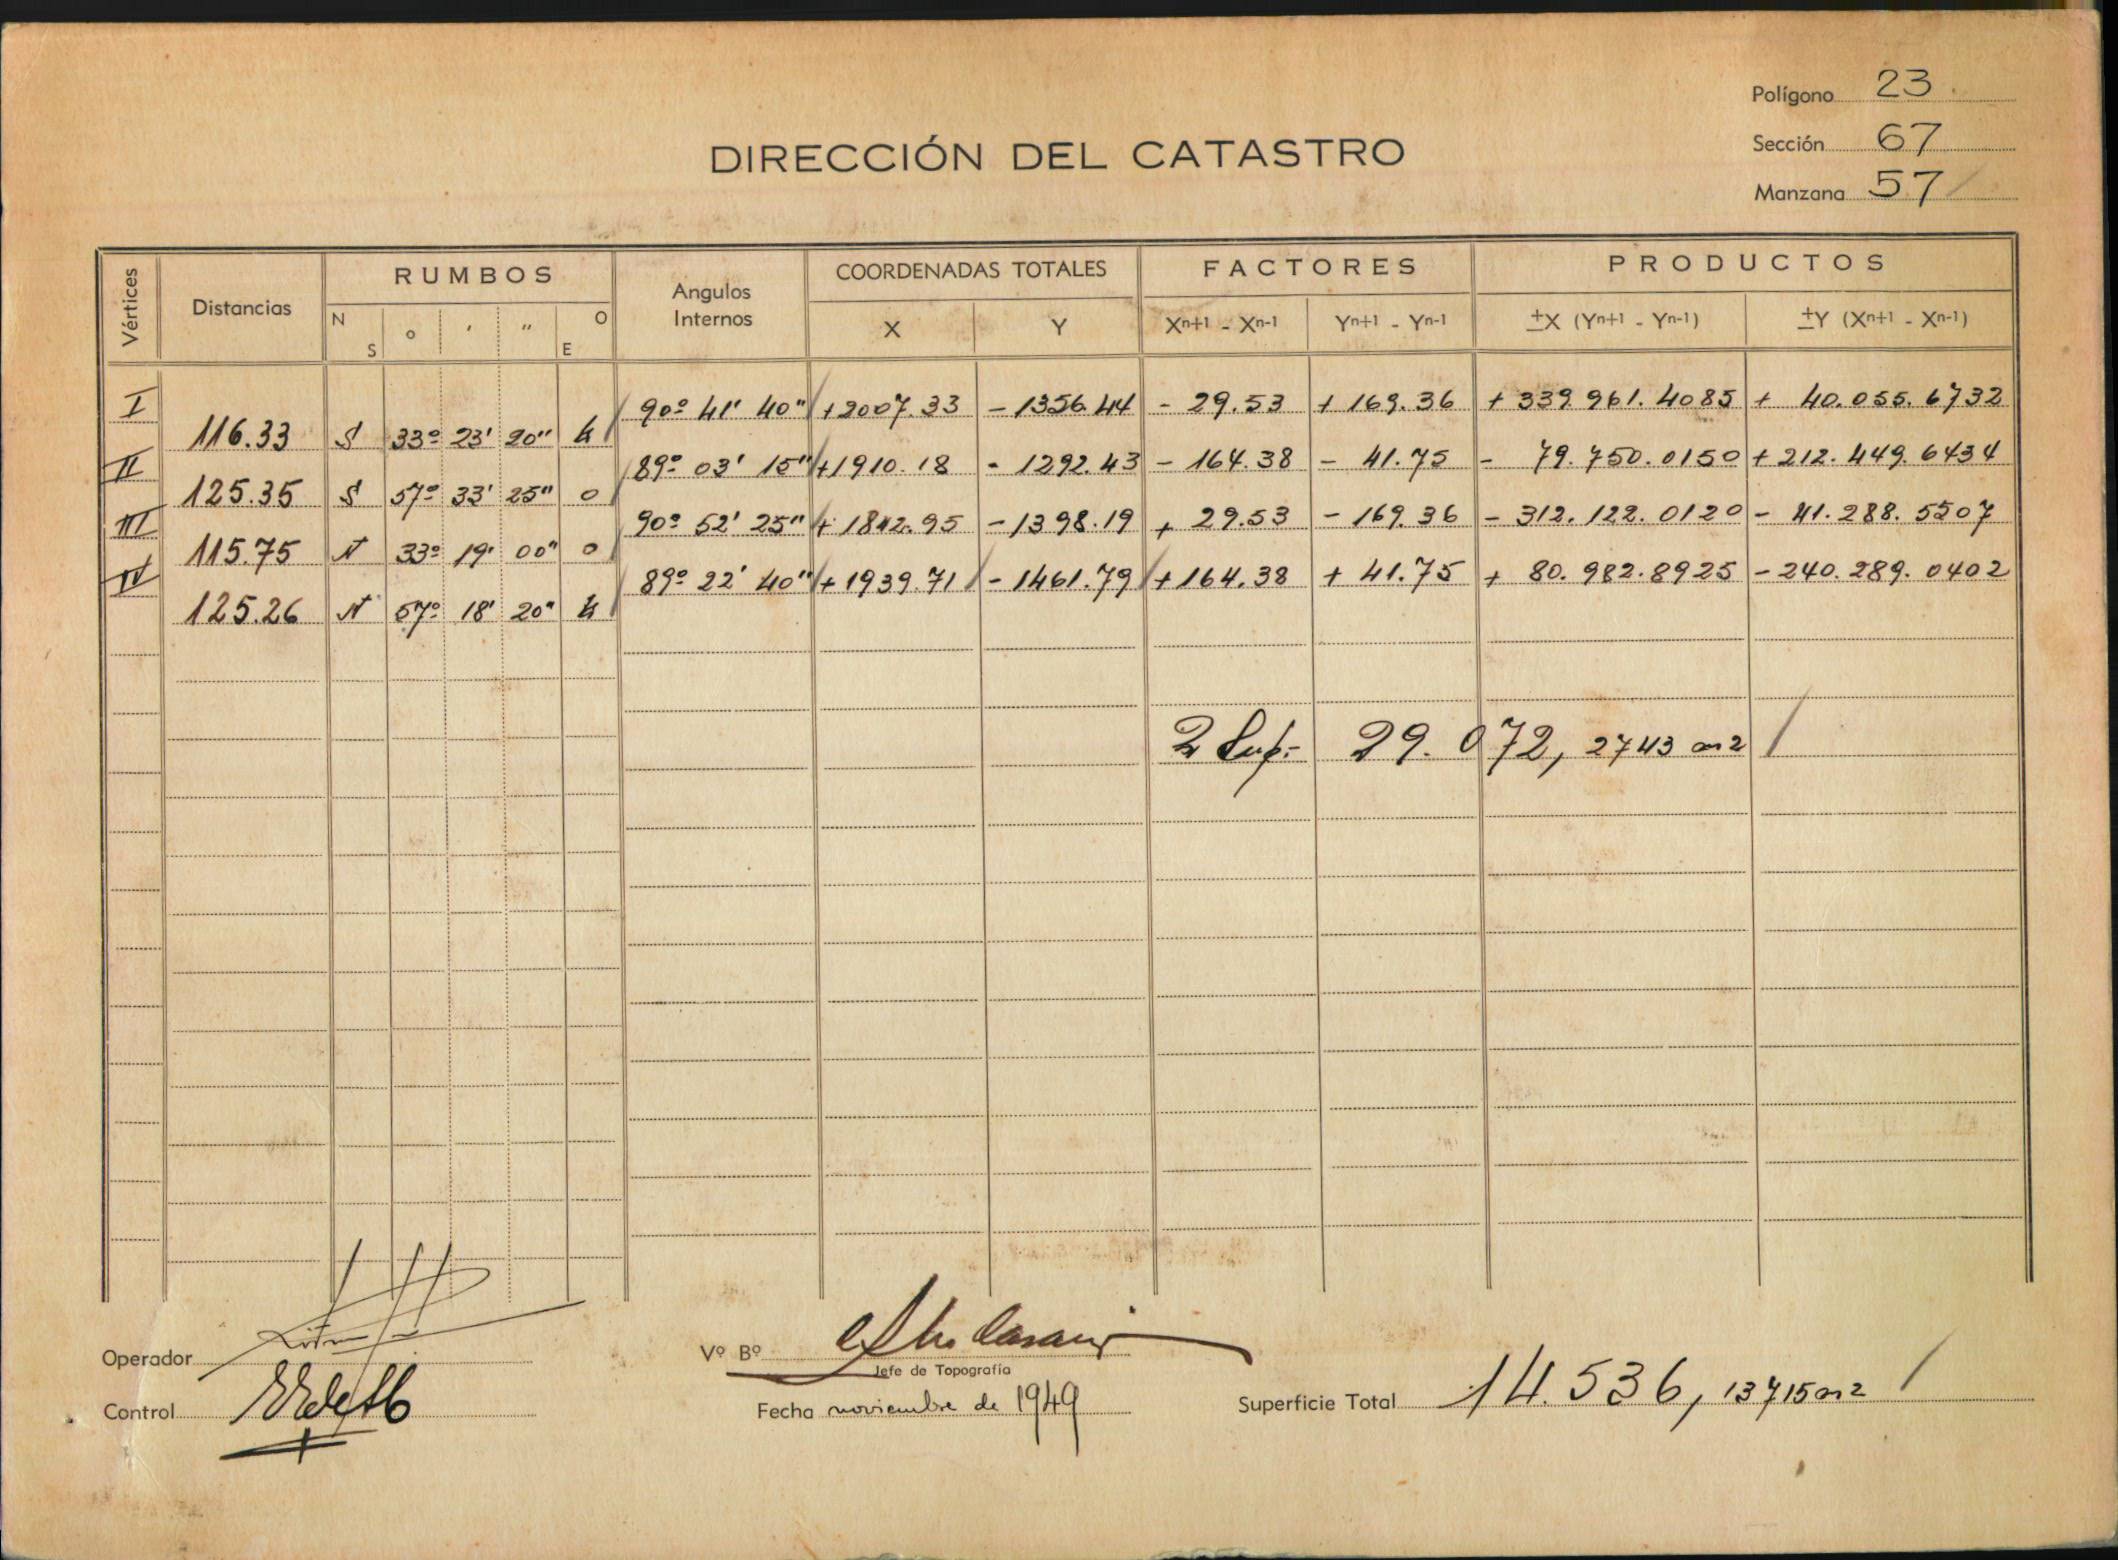 Polígono 23
DIRECCIÓN DEL CATASTRO
Sección 67
Manzana 57
Vértices Distancias RUMBOS Angulos Internos COORDENADAS TOTALES FACTORES PRODUCTOS
N S ° ' " O E X Y Xn+1 - Xn-1 Yn+1 - Yn-1 ±X (Yn+1 - Yn-1) ±Y (Xn+1 - Xn-1)
I 90º 41' 40" +2007.33 -1356.44 - 29.53 + 169.36 + 339.961.4085 + 40.055.6732
116.33 S 33º 23' 20" E
II 89º 03' 15" +1910.18 - 1292.43 - 164.38 - 41.75 - 79.750.0150 + 212.449.6434
125.35 S 57º 33' 25" O
III 90º 52' 25" + 1842.95 -1398.19 + 29.53 - 169.36 - 312.122.0120 - 41.288.5507
115.75 N 33º 19' 00" O
IV 89º 22' 40" + 1939.71 - 1461.79 + 164.38 + 41.75 + 80.982.8925 - 240.289.0402
125.26 N 57º 18' 20" E
2 Sup:- 29.072,2743 m2
Operador
Vº Bº
Jefe de Topografía
Control
Fecha noviembre de 1949
Superficie Total 14.536,13715 m2